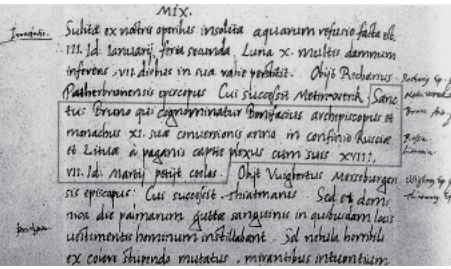 MIX.
Subita ex nostris operibus insolita aquarum refusio facta est
III. Id. Ianuarij, feria secunda, Luna X. multis damnum
inferens, VII. diebus in sua rabie perstitit. Obijt Recharius
Patherbrunensis episcopus Cui successit Meinwerik, Sanc
tus Bruno qui cognominatur Bonifacius archipiscopus et
monachus XI. suæ conversionis anno in confinio Rusciæ
et Lituæ à paganis capite plexus cum suis XVIII,
VII. Id. Martij petijt coelos. Obijt Wigbertus Merseburgen
sis episcopus: Cui successit Thiatmarus Sed et domi
nica die palmarum guttæ sanguinis in quibusdam locis
vestimentis hominum instillabant. Sol nebula horribili
ex colore stupendo mutatus, mirantibus intuentium